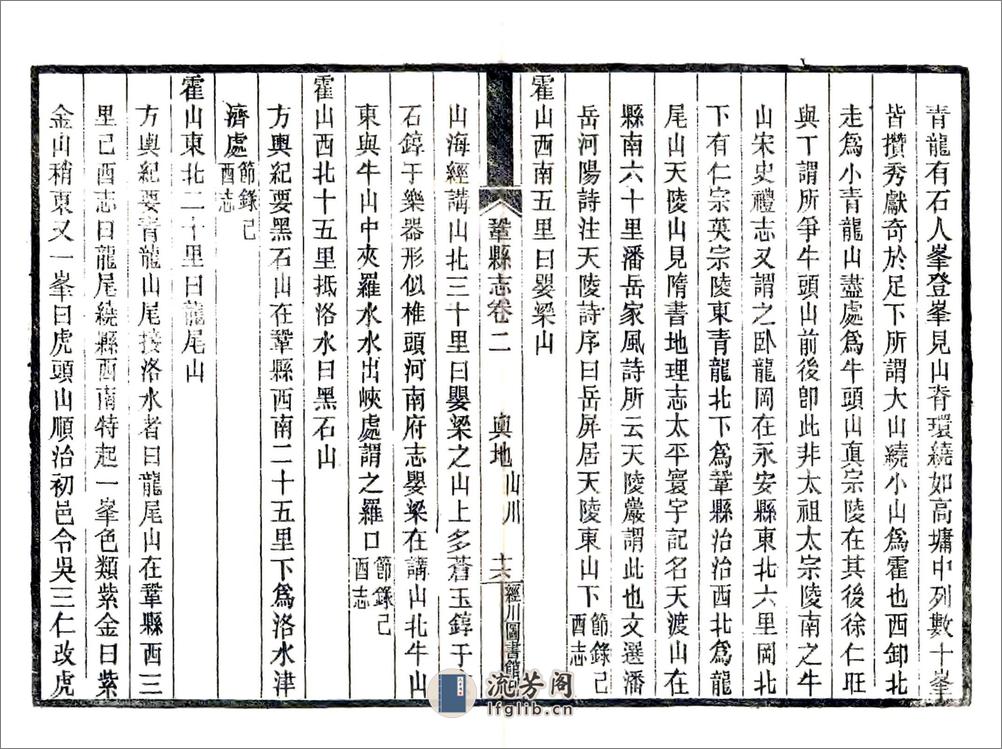 青龍有石人峯登峯見山脊環繞如高墉中列數十峯
皆攢秀獻奇於足下所謂大山繞小山爲霍也西卸北
走爲小青龍山盡處爲牛頭山眞宗陵在其後徐仁旺
與丁謂所爭牛頭山前後卽此非太祖太宗陵南之牛
山宋史禮志又謂之臥龍岡在永安縣東北六里岡北
下有仁宗英宗陵東青龍北下爲鞏縣治治西北爲龍
尾山天陵山見隋書地理志太平寰宇記名天渡山在
縣南六十里潘岳家風詩所云天陵巖謂此也文選潘
岳河陽詩注天陵詩序曰岳屏居天陵東山下節錄己酉志
霍山西南五里曰嬰梁山
鞏縣志卷二 輿地 山川 十六 經川圖書館
山海經講山北三十里曰嬰梁之山上多蒼玉錞于
石錞于樂器形似椎頭河南府志嬰梁在講山北牛山
東與牛山中夾羅水水出峽處謂之羅口節錄己酉志
霍山西北十五里抵洛水曰黑石山
方輿紀要黑石山在鞏縣西南二十五里下爲洛水津
濟處節錄己酉志
霍山東北二十里曰龍尾山
方輿紀要青龍山尾接洛水者曰龍尾山在鞏縣西三
里己酉志曰龍尾繞縣西南特起一峯色類紫金曰紫
金山稍東又一峯曰虎頭山順治初邑令吳三仁改虎
流芳阁
lfglib.cn